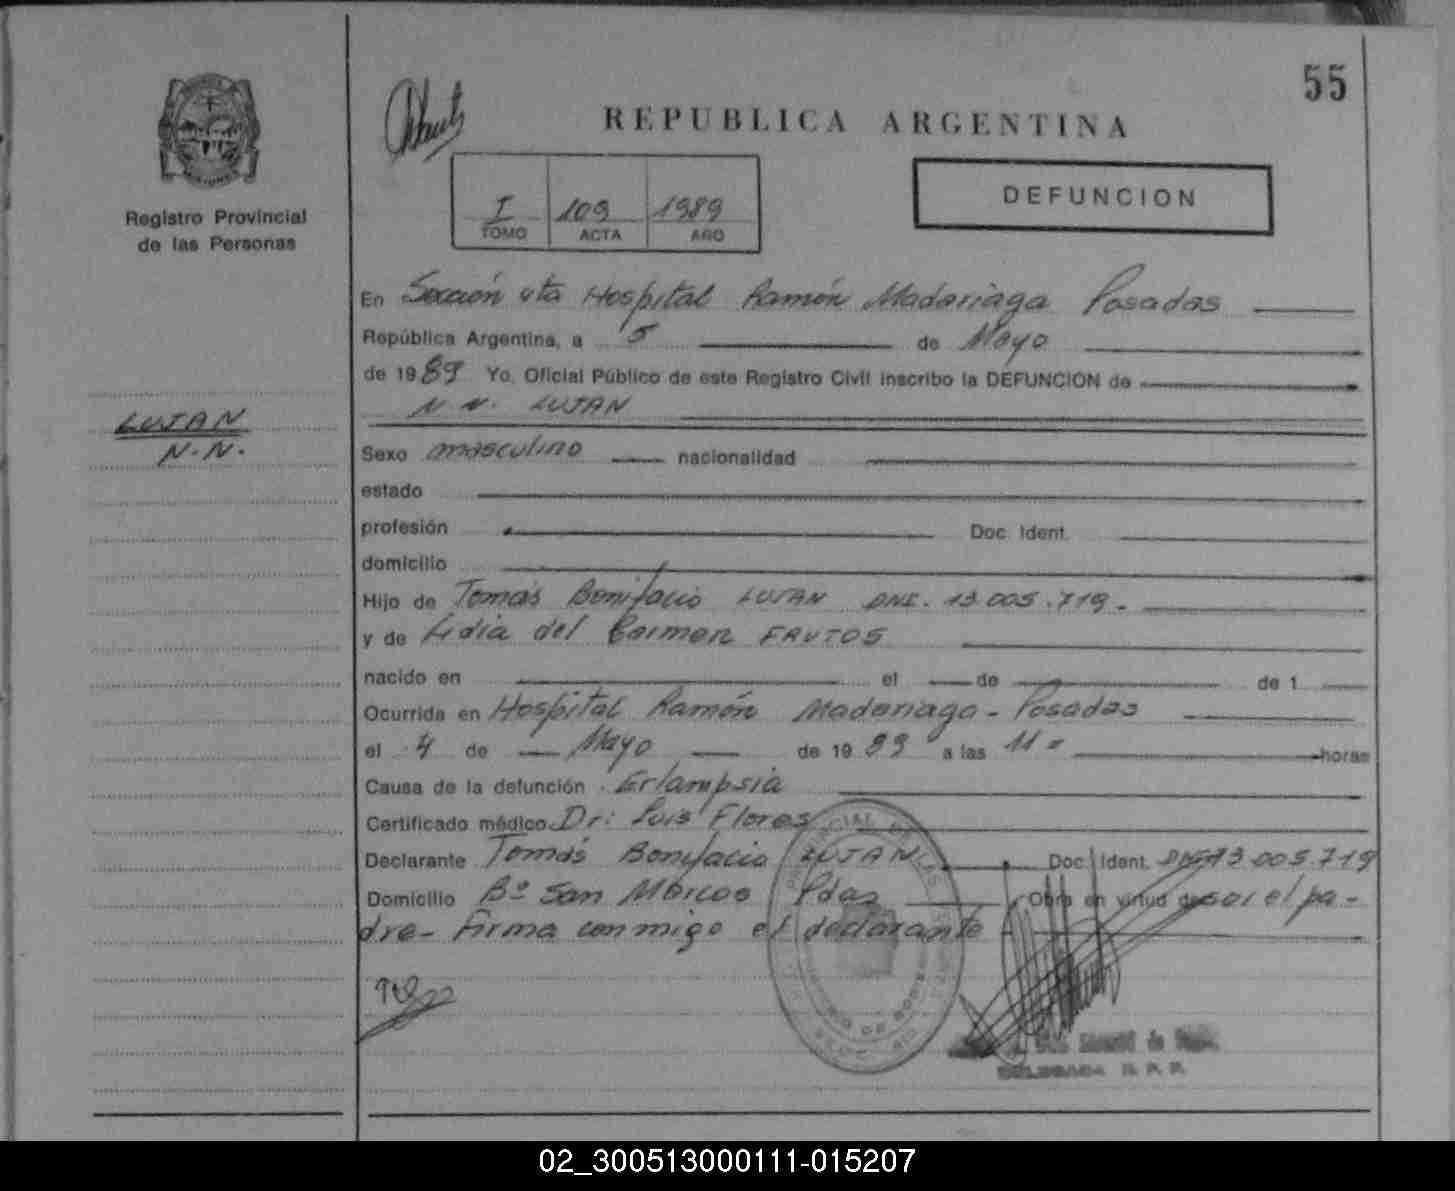 55
REPUBLICA ARGENTINA
DEFUNCION
I 109 1989
TOMO ACTA AÑO
Registro Provincial
de las Personas
LUJAN
N.N.
En Sección 4ta Hospital Ramón Madariaga Posadas
República Argentina, a 5 de Mayo
de 1989 Yo, Oficial Público de este Registro Civil inscribo la DEFUNCION de
N.N. LUJAN
Sexo masculino nacionalidad
estado
profesión Doc. Ident.
domicilio
Hijo de Tomás Bonifacio LUJAN DNI. 13.005.719.-
y de Lidia del Carmen FRUTOS
nacido en el de de 1
Ocurrida en Hospital Ramón Madariaga - Posadas
el 4 de Mayo de 1989 a las 11 = horas
Causa de la defunción Erlampsia
Certificado médico Dr: Luis Flores
Declarante Tomás Bonifacio LUJAN Doc. Ident. DNI 13.005.719
Domicilio Bº San Marcos Pdas Obra en virtud de ser el pa-
dre- Firma conmigo el declarante
DELEGADA R. P. P.
02_300513000111-015207